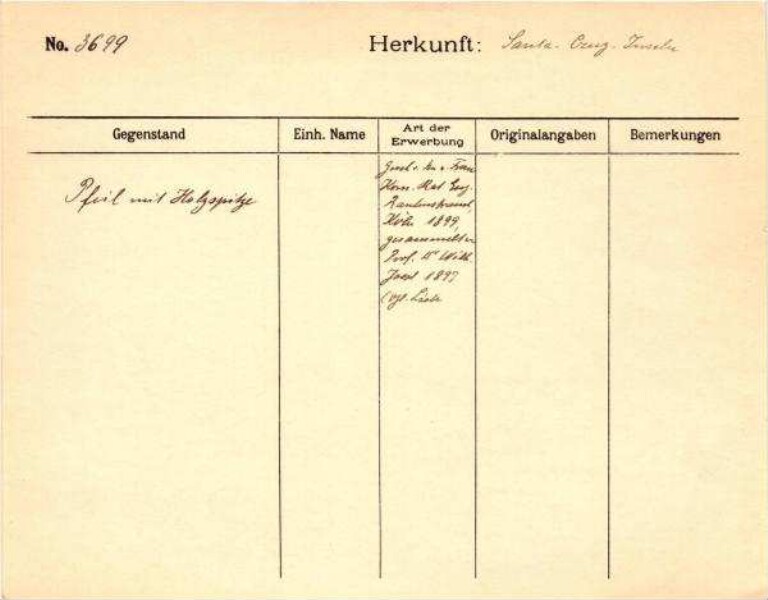 No. 3699
Herkunft: Santa-Cruz-Inseln
Gegenstand
Einh. Name
Art der
Erwerbung
Originalangaben
Bemerkungen
Pfeil mit Holzspitze
Gesch. v. Frau
Kom. Rat Eug.
Rautenstrauch,
Köln 1899,
gesammelt v.
Prof. Dr Wilh.
Joest 1897
(vgl. Liste